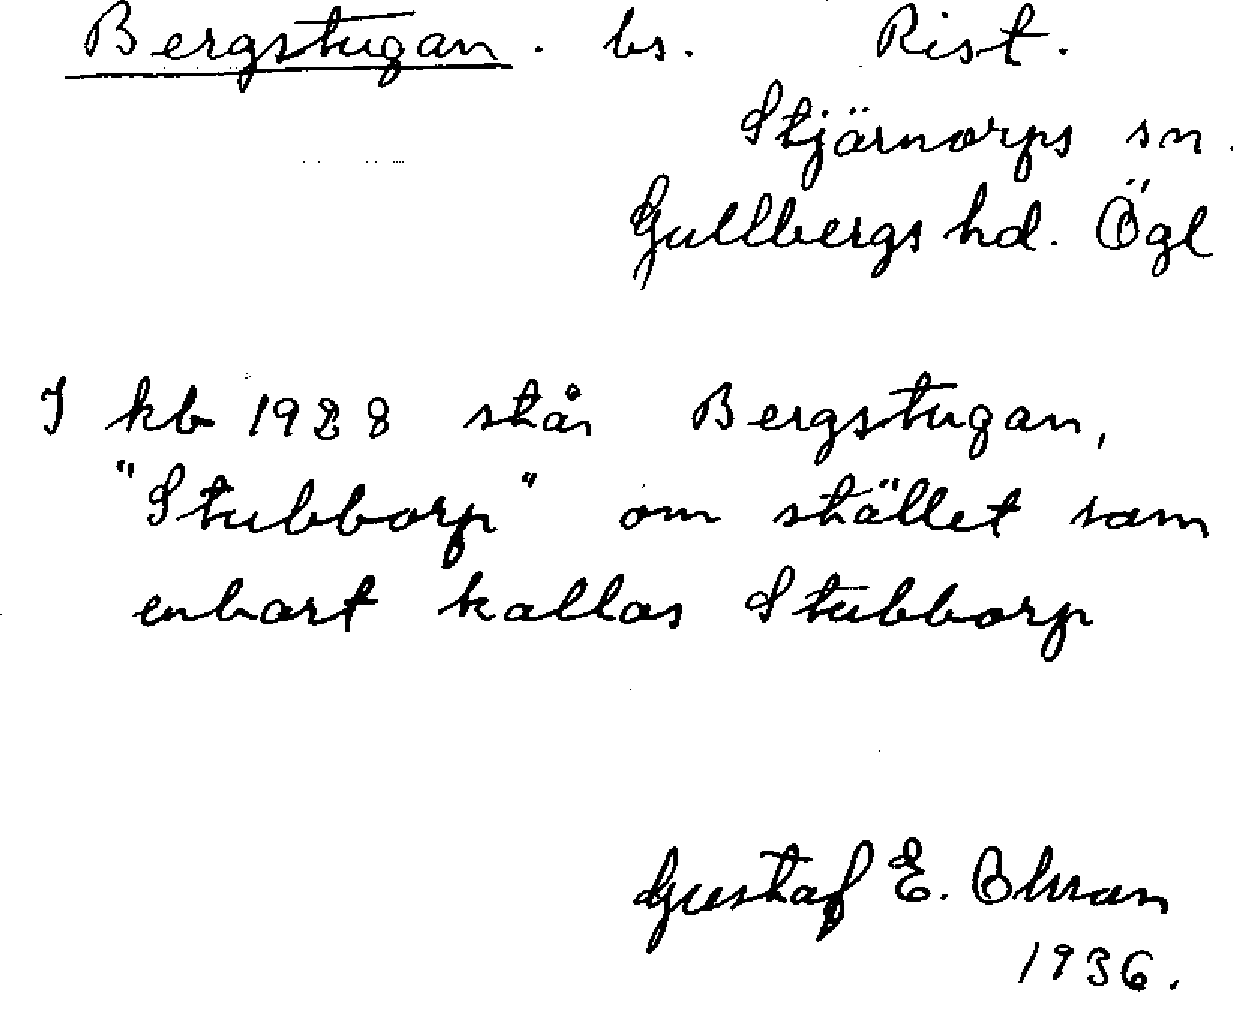 Bergstugan. bs. Rist.
Stjärnorps sn.
Gullbergs hd. Ögl
I kb 1928 står Bergstugan,
"Stubborp" om stället som
enbart kallas Stubborp
Gustaf E. Ohman
1936.